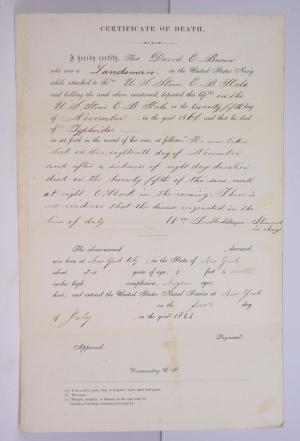 CERTIFICATE OF DEATH.
I hereby certify, That David E. Brown
who was a Landsman in the United States Navy
while attached to the U. S. Stmr E B Hale
and holding the rank above mentioned, departed this life in the
U S Stmr E B Hale on the twenty fifth day
of November in the year 1864 and that he died
of Typhoides
as set forth in the record of his case, as follows: He was taken
sick on the eighteenth day of November
and after a sickness of eight days duration
died on the twenty fifth of the same month
at eight O'Clock in the evening. There is
no evidence that the disease originated in the
line of duty Wm
in charge
The above-named , deceased,
was born at New York City, in the State of New York
about 24 years of age; 5 feet 6
inches high, complexion, Negro eyes;
hair, and entered the United States Naval Service at New York
on the first day
of July, in the year 1863.
Paymaster.
Approved.
Commanding U. S.